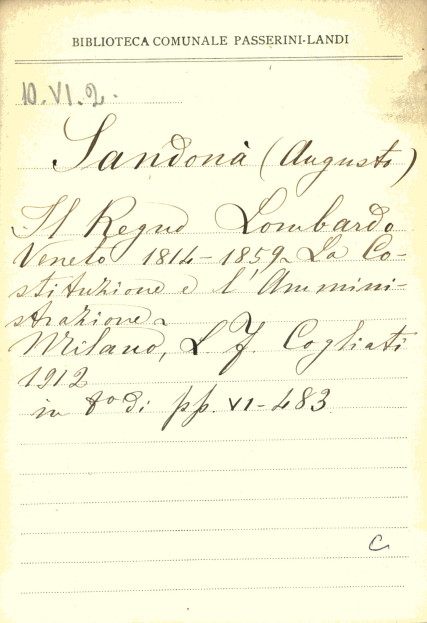 BIBLIOTECA COMUNALE PASSERINI-LANDI
10.VI.2.
Sandonà (Augusto)
Il Regno Lombardo
Veneto 1814-1859. La Co-
stituzione e l'Ammini-
strazione.
Milano, L. F. Cogliati
1912
in 8º di pp. VI-483
C